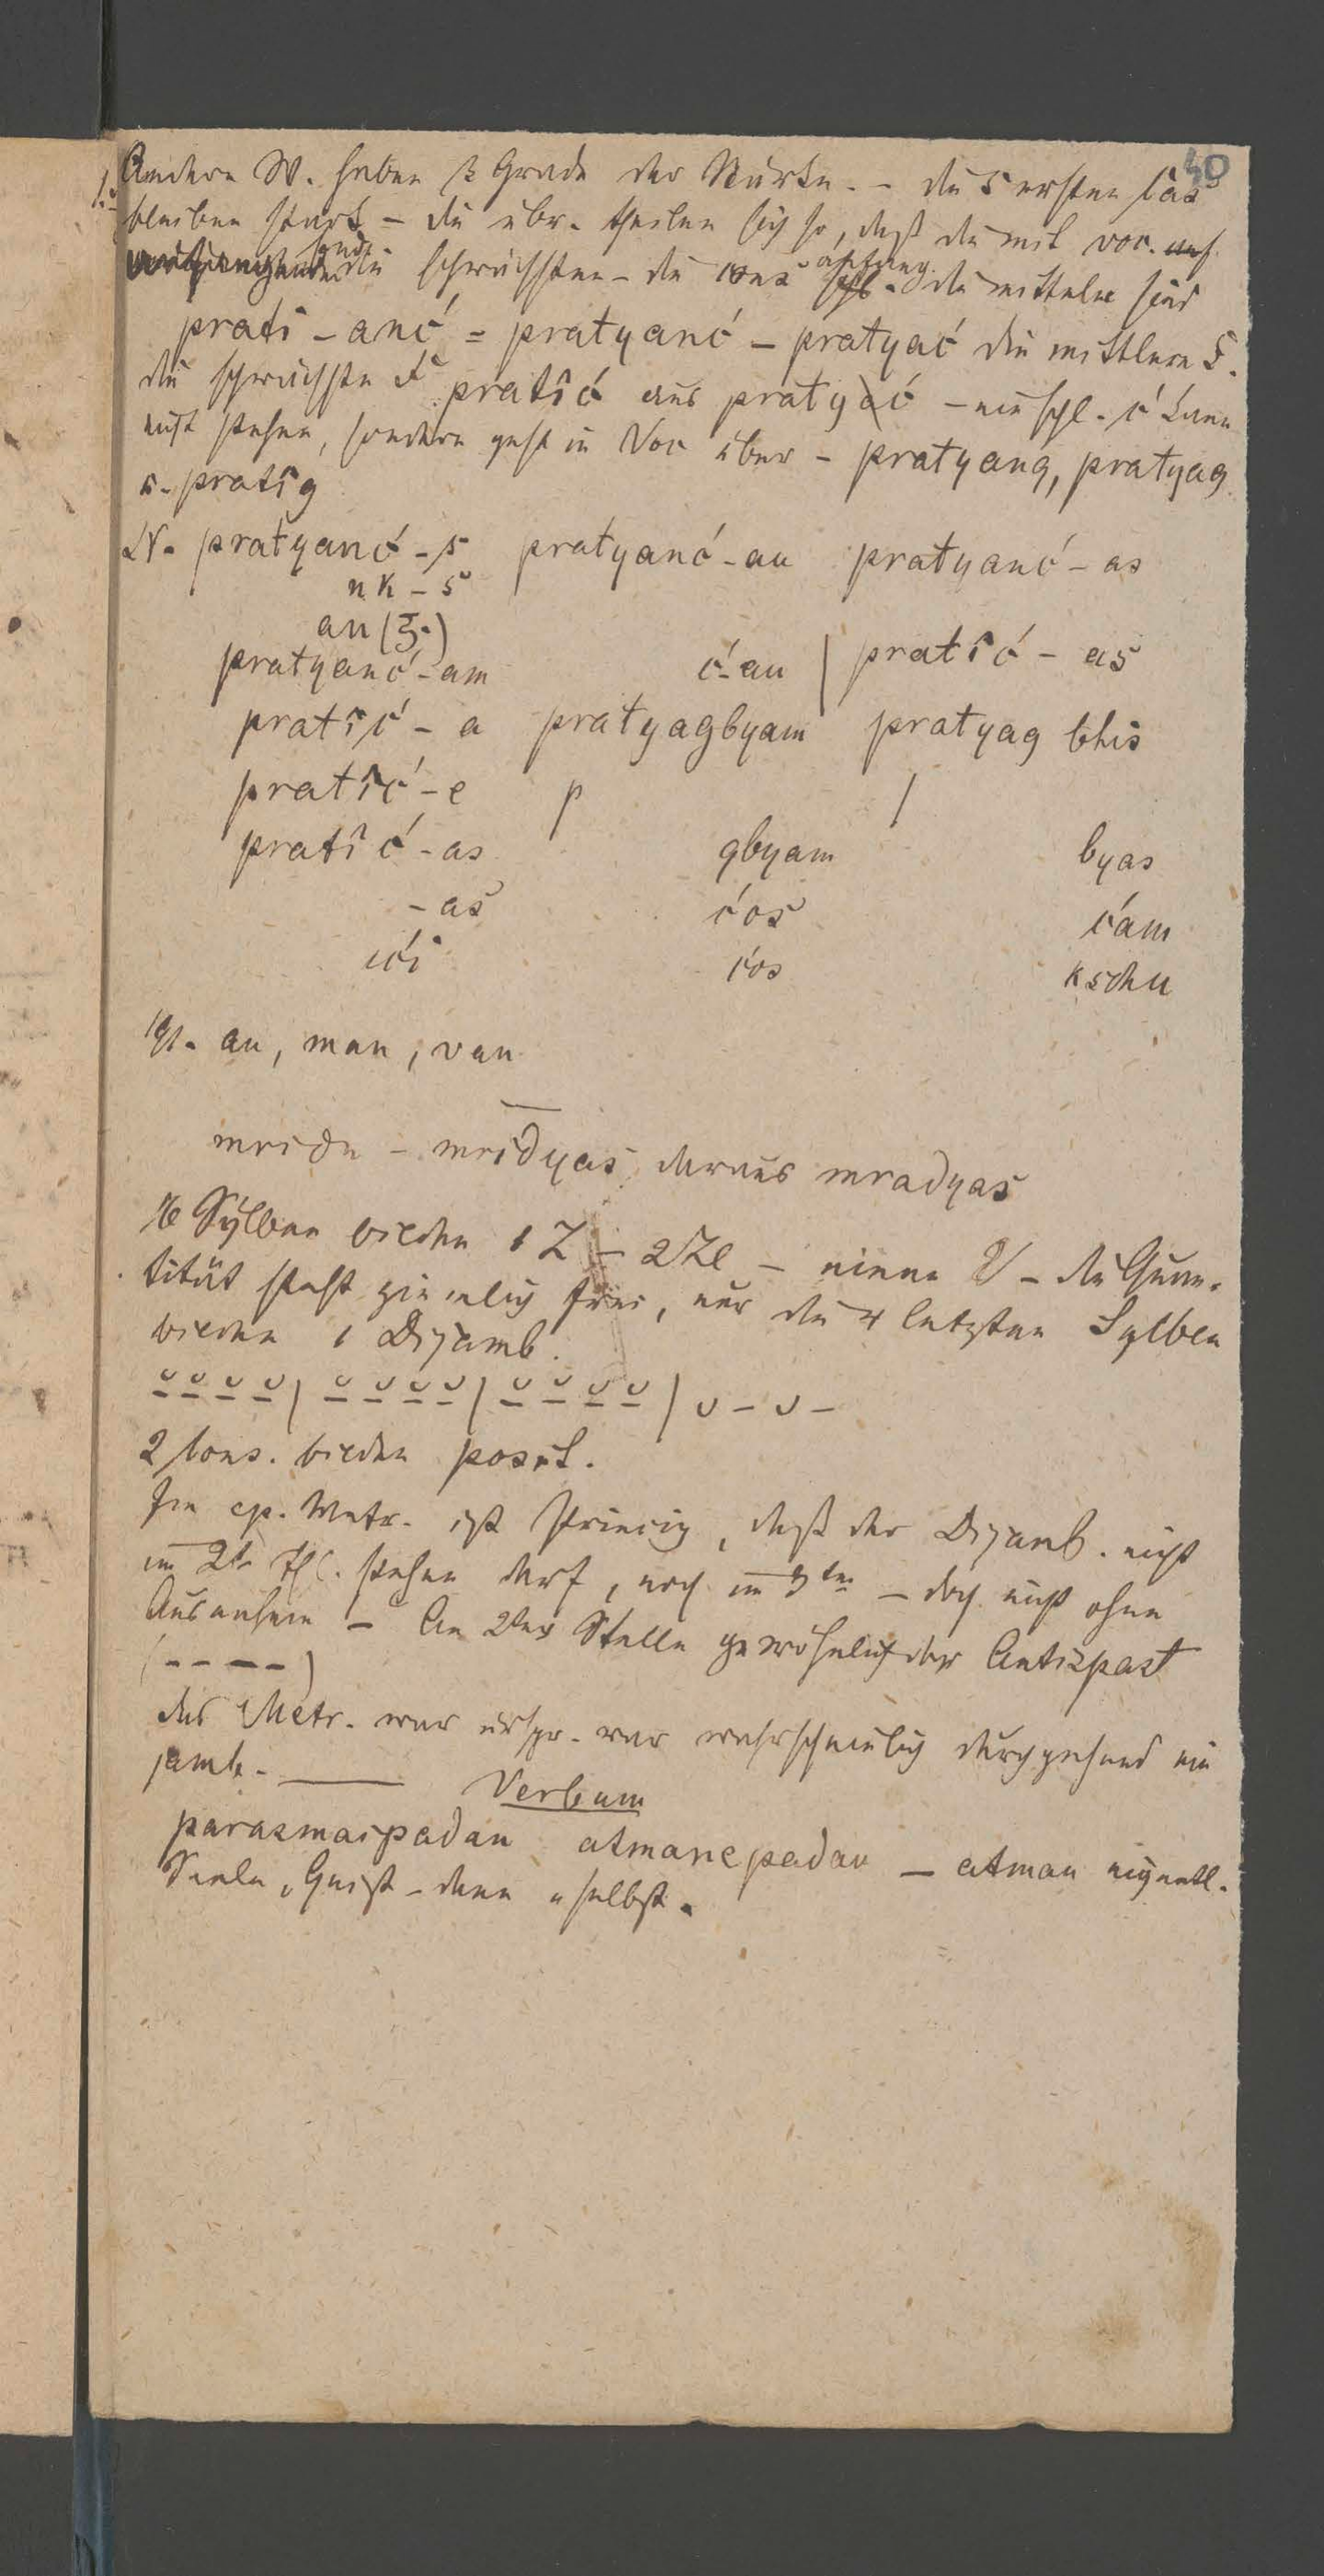 40
Andere W. haben 3 Grade der Stärke. - die 5 ersten Cas
bleiben stark - die übr. theilen sich so, daß die mit voc.
die schwächsten - die cons anfang. die mittelen sind
prati - anć = pratyanć - pratyać die mittlere F.
die schwächste F. pratîć aus pratyać - ein schl. ć kann
nicht stehen, sondern geht in Voc über - pratyang, pratyag
u. pratîg
N. pratyanć - s pratyanć - au pratyanć - as
nk - s
an (ξ.)
pratyanć - am ć-au | pratîć - as
pratîć - a pratyagbyam pratyag bhis
pratîć - e p /
pratîć - as gbyam byas
- as ćos ćam
ići ćos kschu
an, man, van
mridu - mridyas, daraus mradyas
16 Sylben bilden 1 Z - 2 Ze - einen V - die Quan-
tität steht ziemlich frei, nur die 4 letzten Sylben
bilden 1 Dijamb.
⏓ ⏓ ⏓ ⏓ | ⏓ ⏓ ⏓ ⏓ | ⏓ ⏓ ⏓ ⏓ | ᴗ - ᴗ -
2 Cons. bilden posit.
Im ep. Metr. ist Princip, daß der Dijamb. nicht
im 2t. Thl. stehen darf, noch im 3ten - doch nicht ohne
Ausnahme - An 2ter Stelle gewöhnlich der Antispast
( - - - - )
das Metr. war urspr. war wahrscheinlich durchgehend ein
jamb.
Verbum
parasmaipadan atmanepadan - atman eigentl.
Seele, Geist - dann "selbst.